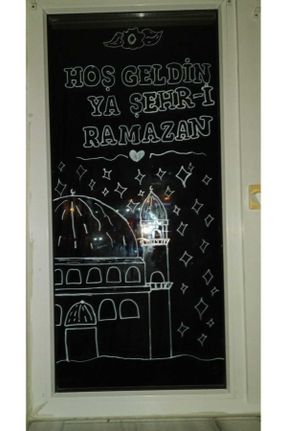 HOŞ GELDİN
YA ŞEHR-İ
RAMAZAN